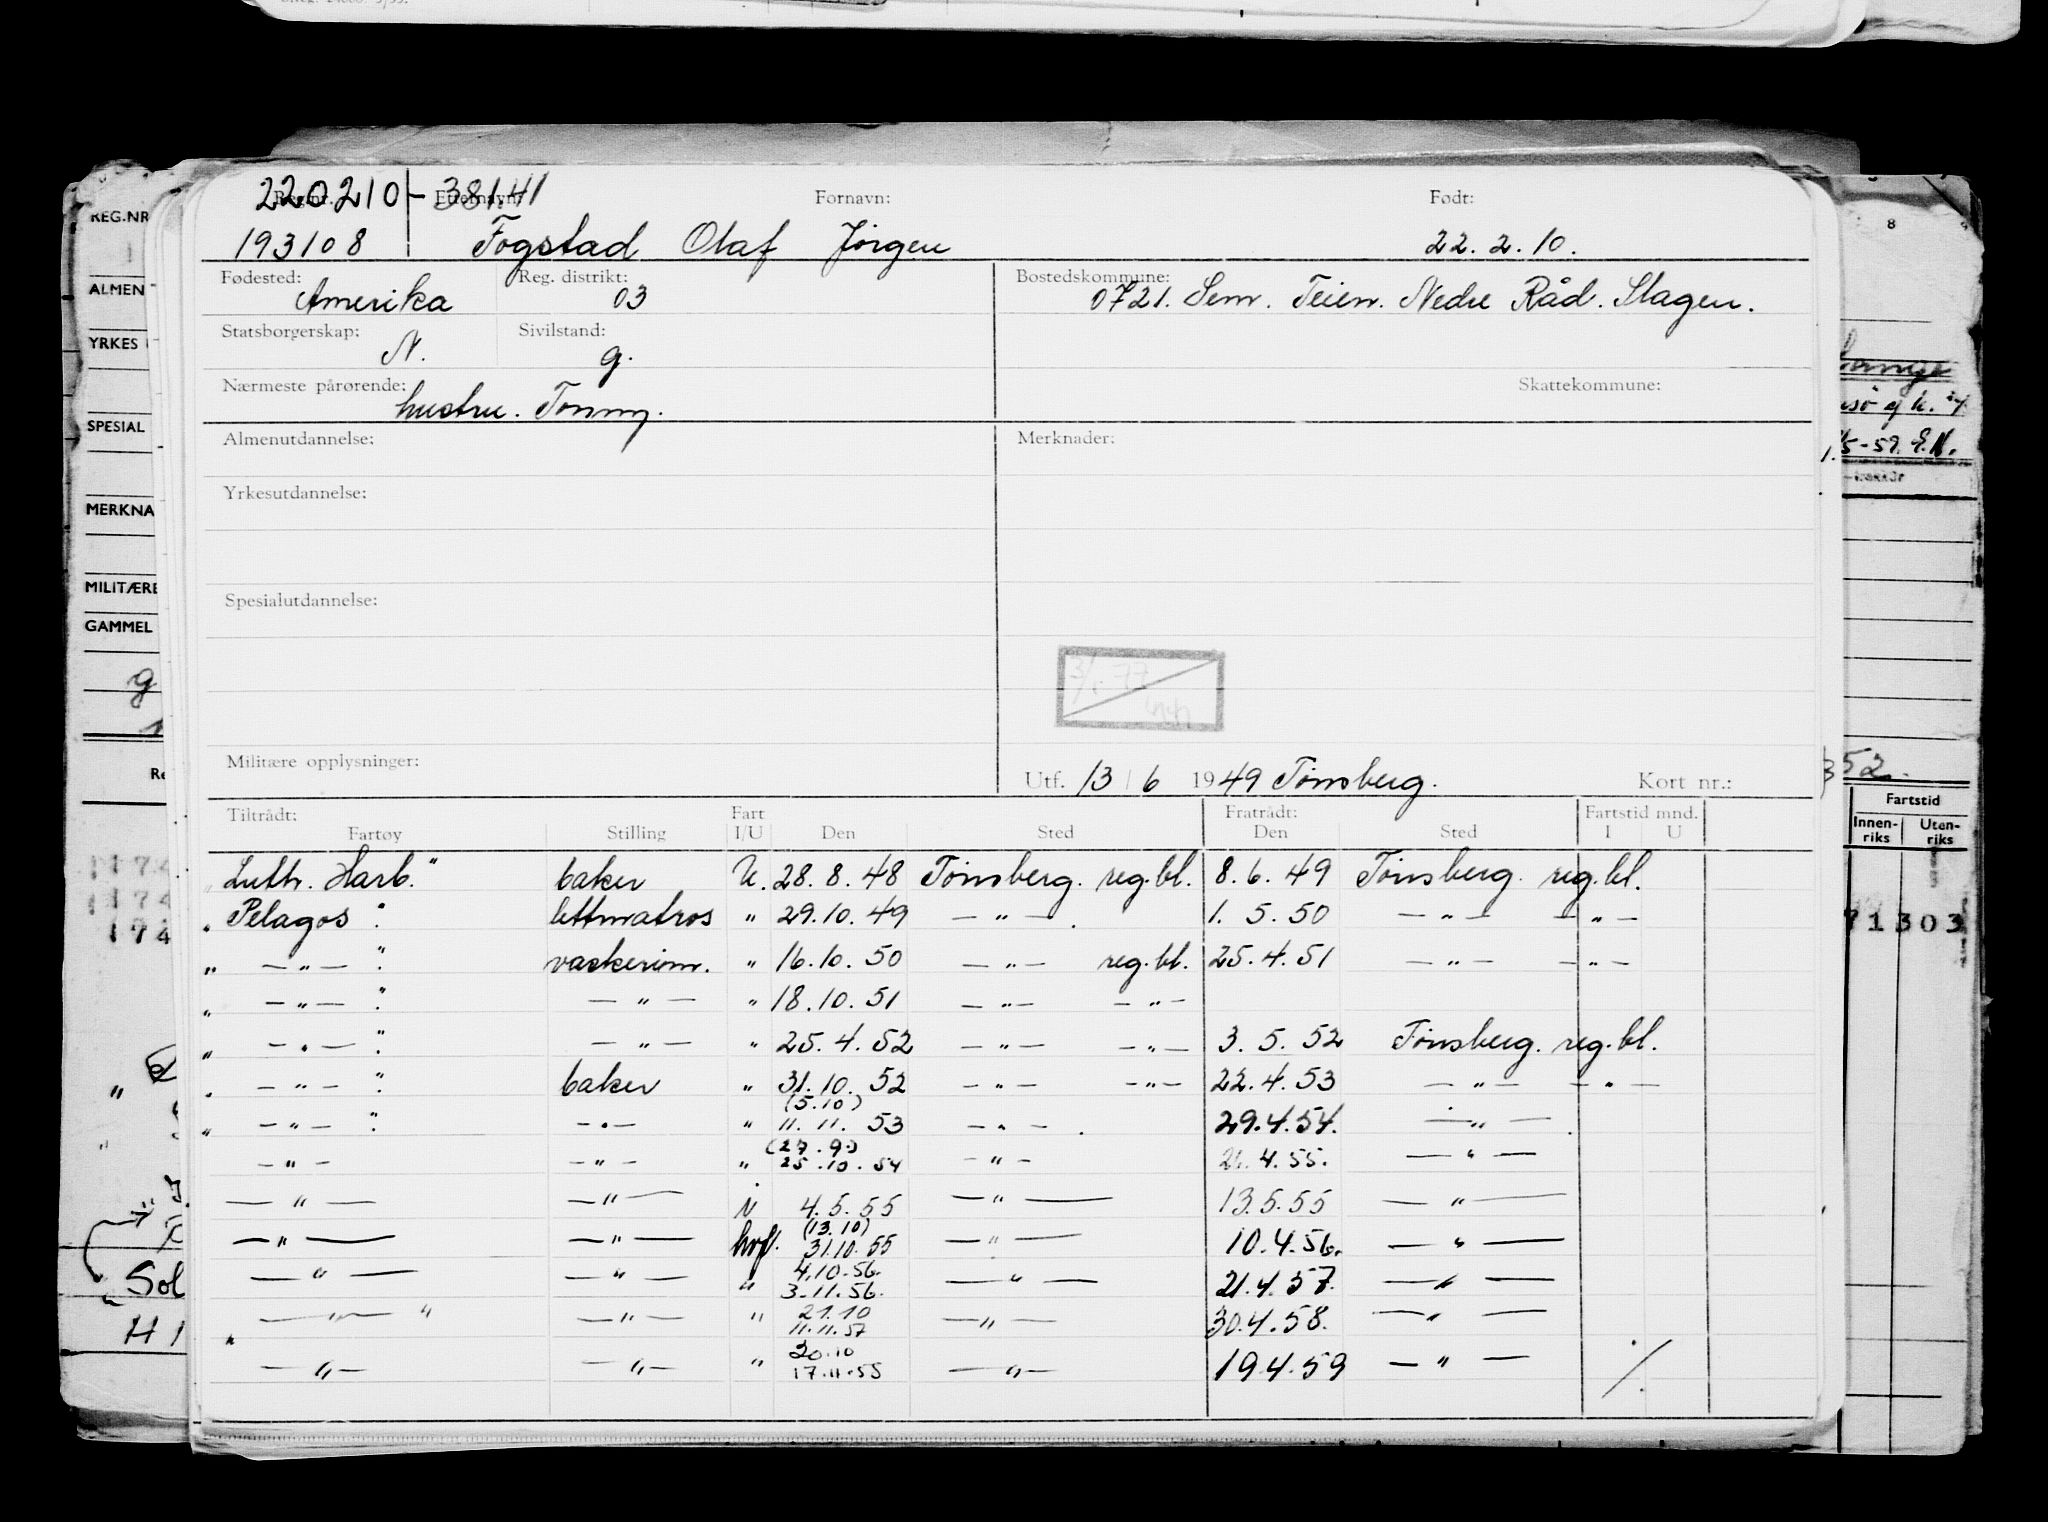 220210-38141
Reg.nr. Etternavn: Fornavn: Født:
193108 Fogstad Olaf Jørgen 22.2.10.
Fødested: Amerika Reg. distrikt: 03 Bostedskommune: 0721. Sem. Teien. Nedre Råd. Slagen.
Statsborgerskap: N. Sivilstand: g.
Nærmeste pårørende: hustru. Tonny. Skattekommune:
Almenutdannelse: Merknader:
Yrkesutdannelse:
Spesialutdannelse:
3/1.77
Militære opplysninger: Utf. 13/6 1949 Tønsberg. Kort nr.:
Tiltrådt: Fart Fratrådt: Fartstid mnd.
Fartøy Stilling I/U Den Sted Den Sted I U
"Luth. Harb." baker U. 28.8.48 Tønsberg. reg.bl. 8.6.49 Tønsberg. reg.bl.
"Pelagos" lettmatros " 29.10.49 — " — . 1.5.50 — " — — " —
" — " — " vaskerim. " 16.10.50 — " — reg.bl. 25.4.51 — " — — " —
" — " — " — " — " 18.10.51 — " — — " —
" — " — " — " — " 25.4.52 — " — — " — 3.5.52 Tønsberg. reg.bl.
" — " — " baker " 31.10.52 — " — — " — 22.4.53 — " — — " —
" — " — " — " — " (5.10) 11.11.53 — " — . 29.4.54. — " — .
— " — — " — " (27.9.) 25.10.54 — " — 4.55. — " —
— " — — " — 4.5.55 — " — 13.5.55 — " —
— " — — " — hvf. (13.10) 31.10.55 — " — 10.4.56. — " —
— " — — " — " 4.10.56. 3.11.56. — " — 21.4.57. — " —
" — " — " — " — " 21.10 11.11.57 — " — 30.4.58. — " —
— " — — " — " 20.10 17.11.55 — " — 19.4.59 — " — ·/.
REG.NR
ALMEN
YRKES
SPESIAL
MERKNA
MILITÆRE
GAMMEL
g
Re
Sol
H
8
52.
Fartstid
Innen- Uten-
riks riks
71303